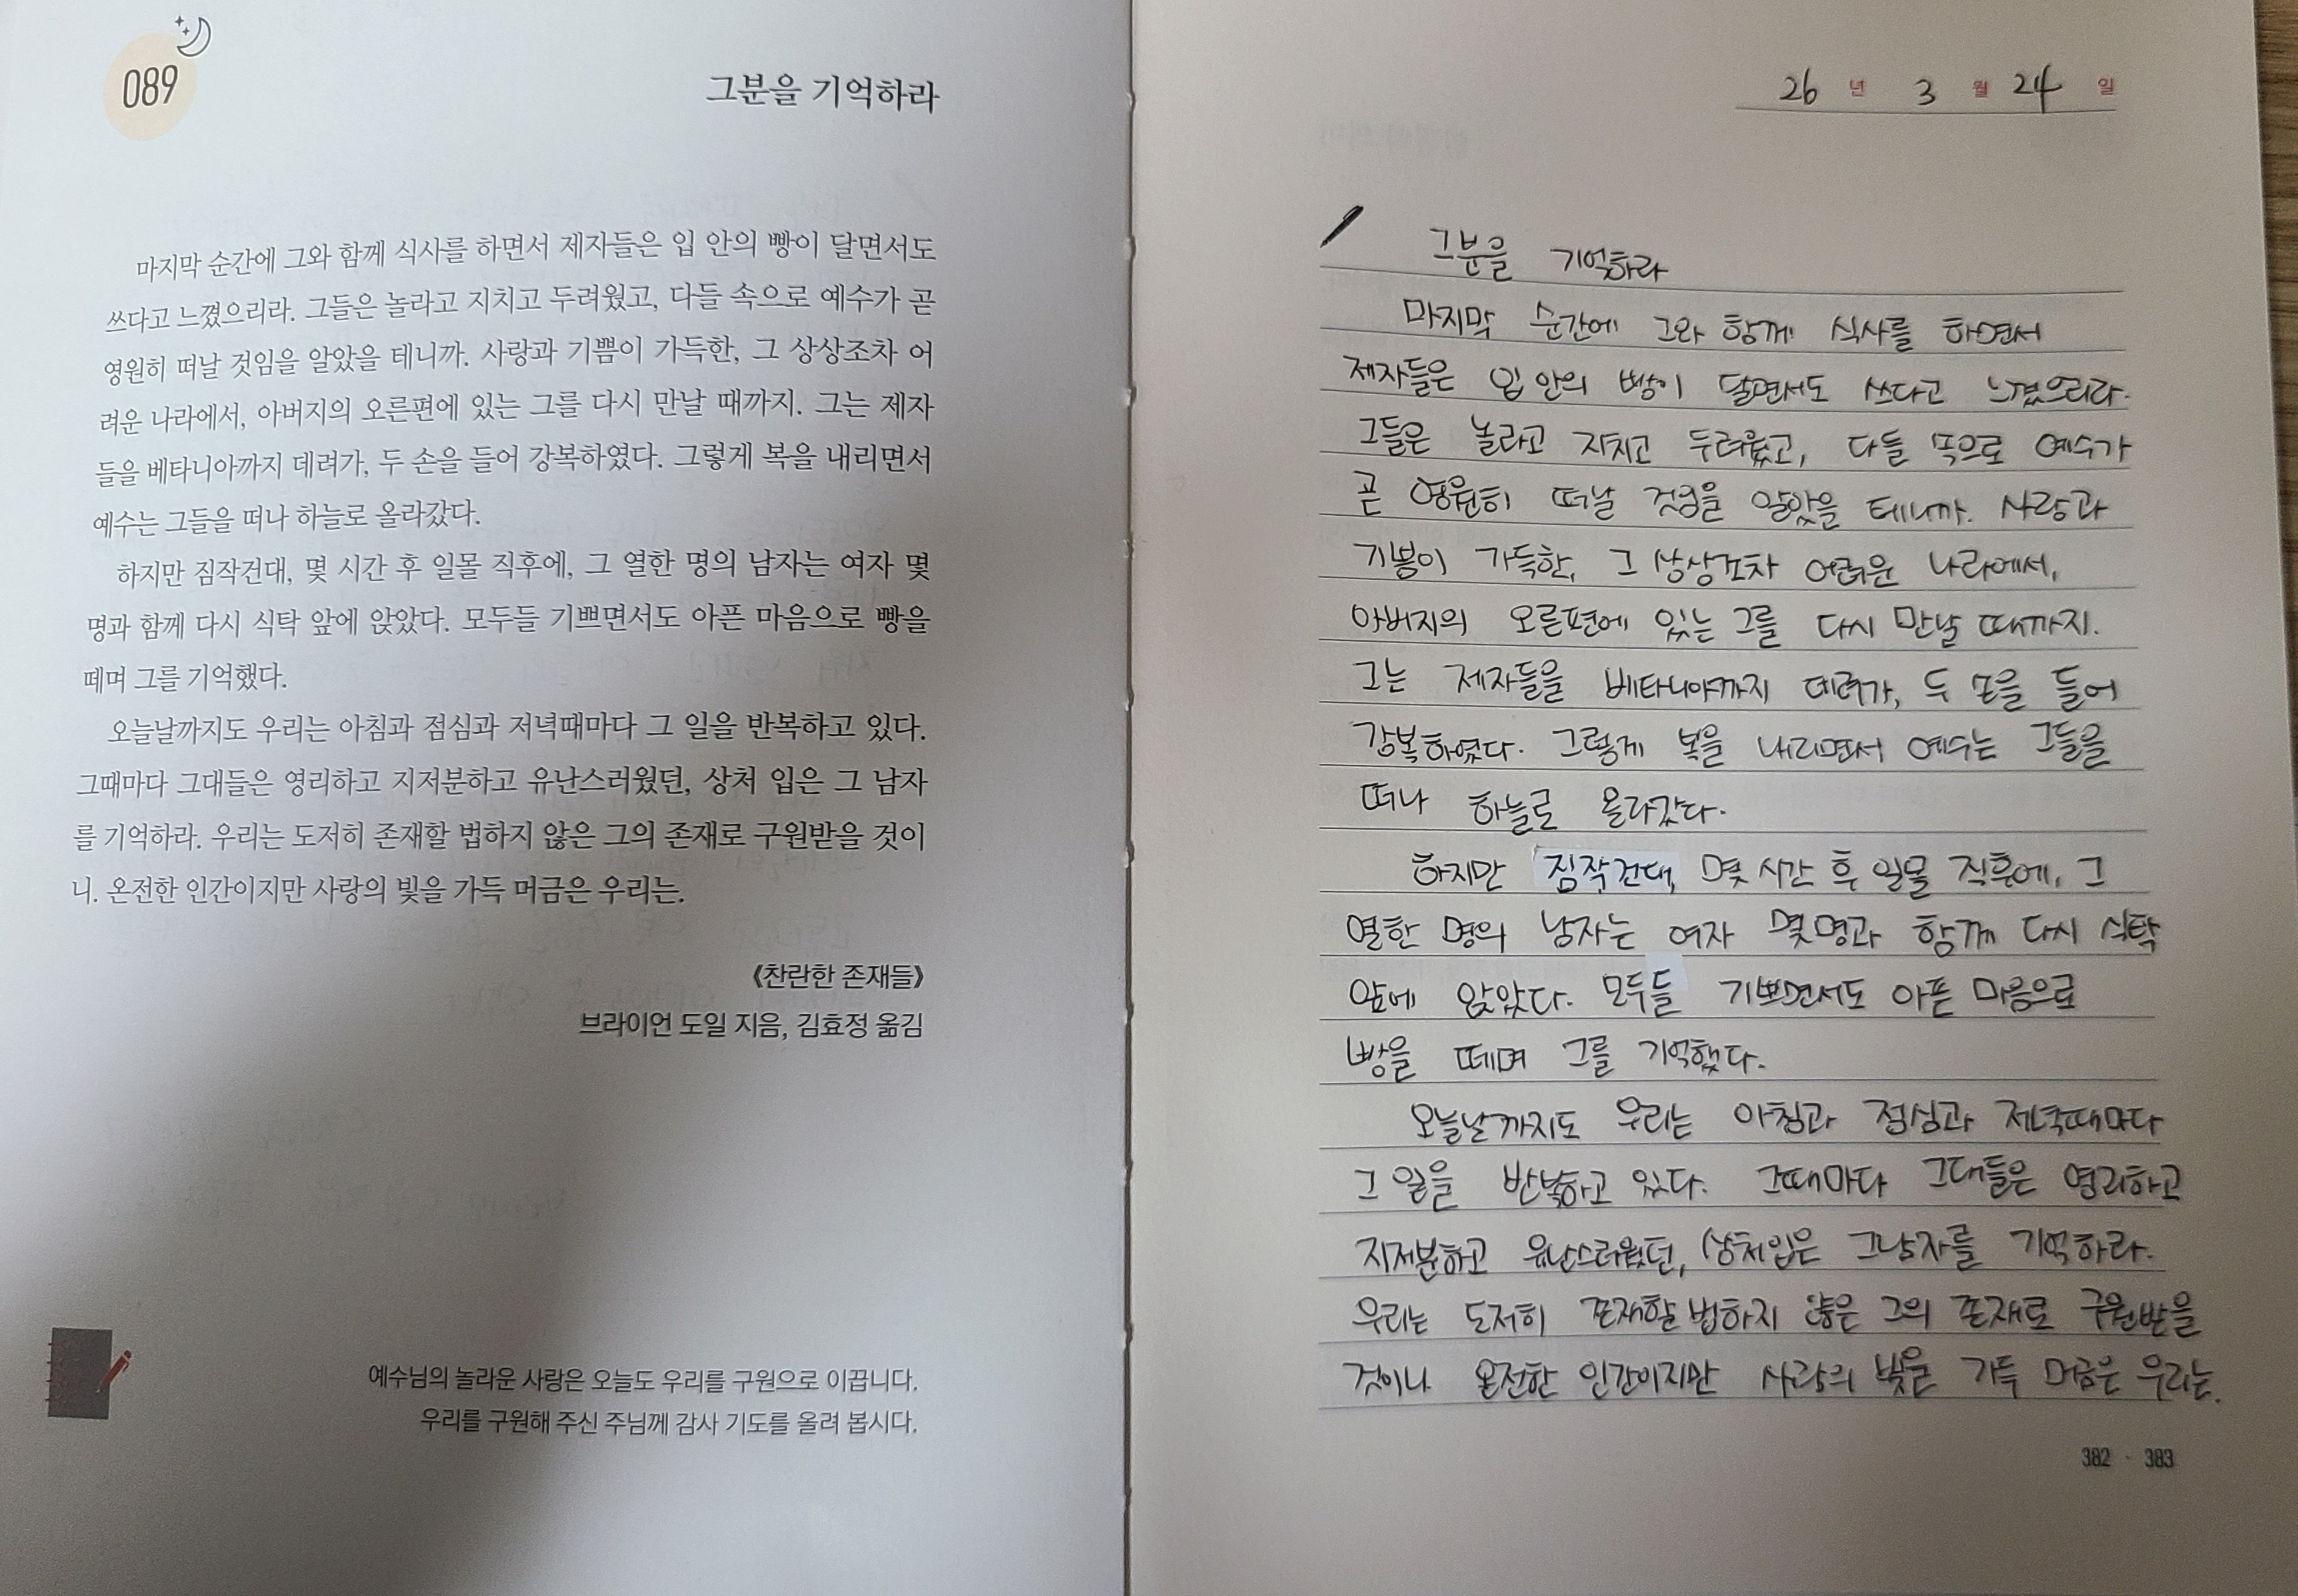 089
그분을 기억하라
마지막 순간에 그와 함께 식사를 하면서 제자들은 입 안의 빵이 달면서도
쓰다고 느꼈으리라. 그들은 놀라고 지치고 두려웠고, 다들 속으로 예수가 곧
영원히 떠날 것임을 알았을 테니까. 사랑과 기쁨이 가득한, 그 상상조차 어
려운 나라에서, 아버지의 오른편에 있는 그를 다시 만날 때까지. 그는 제자
들을 베타니아까지 데려가, 두 손을 들어 강복하였다. 그렇게 복을 내리면서
예수는 그들을 떠나 하늘로 올라갔다.
하지만 짐작건대, 몇 시간 후 일몰 직후에, 그 열한 명의 남자는 여자 몇
명과 함께 다시 식탁 앞에 앉았다. 모두들 기쁘면서도 아픈 마음으로 빵을
떼며 그를 기억했다.
오늘날까지도 우리는 아침과 점심과 저녁때마다 그 일을 반복하고 있다.
그때마다 그대들은 영리하고 지저분하고 유난스러웠던, 상처 입은 그 남자
를 기억하라. 우리는 도저히 존재할 법하지 않은 그의 존재로 구원받을 것이
니. 온전한 인간이지만 사랑의 빛을 가득 머금은 우리는.
《찬란한 존재들》
브라이언 도일 지음, 김효정 옮김
예수님의 놀라운 사랑은 오늘도 우리를 구원으로 이끕니다.
우리를 구원해 주신 주님께 감사 기도를 올려 봅시다.
26 년 3 월 24 일
그분을 기억하라
마지막 순간에 그와 함께 식사를 하면서
제자들은 입 안의 빵이 달면서도 쓰다고 느꼈으리라.
그들은 놀라고 지치고 두려웠고, 다들 속으로 예수가
곧 영원히 떠날 것임을 알았을 테니까. 사랑과
기쁨이 가득한, 그 상상조차 어려운 나라에서,
아버지의 오른편에 있는 그를 다시 만날 때까지.
그는 제자들을 베타니아까지 데려가, 두 손을 들어
강복하였다. 그렇게 복을 내리면서 예수는 그들을
떠나 하늘로 올라갔다.
하지만 짐작건대, 몇 시간 후 일몰 직후에, 그
열한 명의 남자는 여자 몇명과 함께 다시 식탁
앞에 앉았다. 모두들 기쁘면서도 아픈 마음으로
빵을 떼며 그를 기억했다.
오늘날까지도 우리는 아침과 점심과 저녁때마다
그 일을 반복하고 있다. 그때마다 그대들은 영리하고
지저분하고 유난스러웠던, 상처입은 그남자를 기억하라.
우리는 도저히 존재할 법하지 않은 그의 존재로 구원받을
것이니 온전한 인간이지만 사랑의 빛을 가득 머금은 우리는.
382 · 383